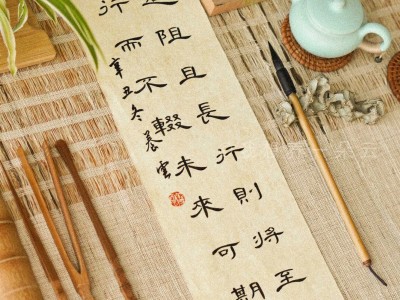 道阻且長行則將至
行而不輟未來可期
辛丑冬慕雲